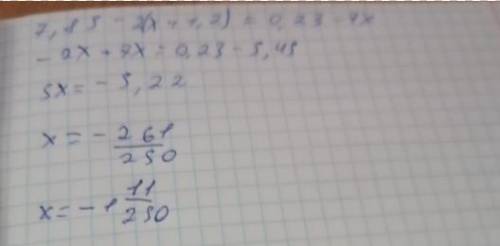 7,85 - 2(x + 1,2) = 0,23 - 7x
- 2x + 7x = 0,23 - 5,45
5x = - 5,22
x = - 261/250
x = - 1 11/250